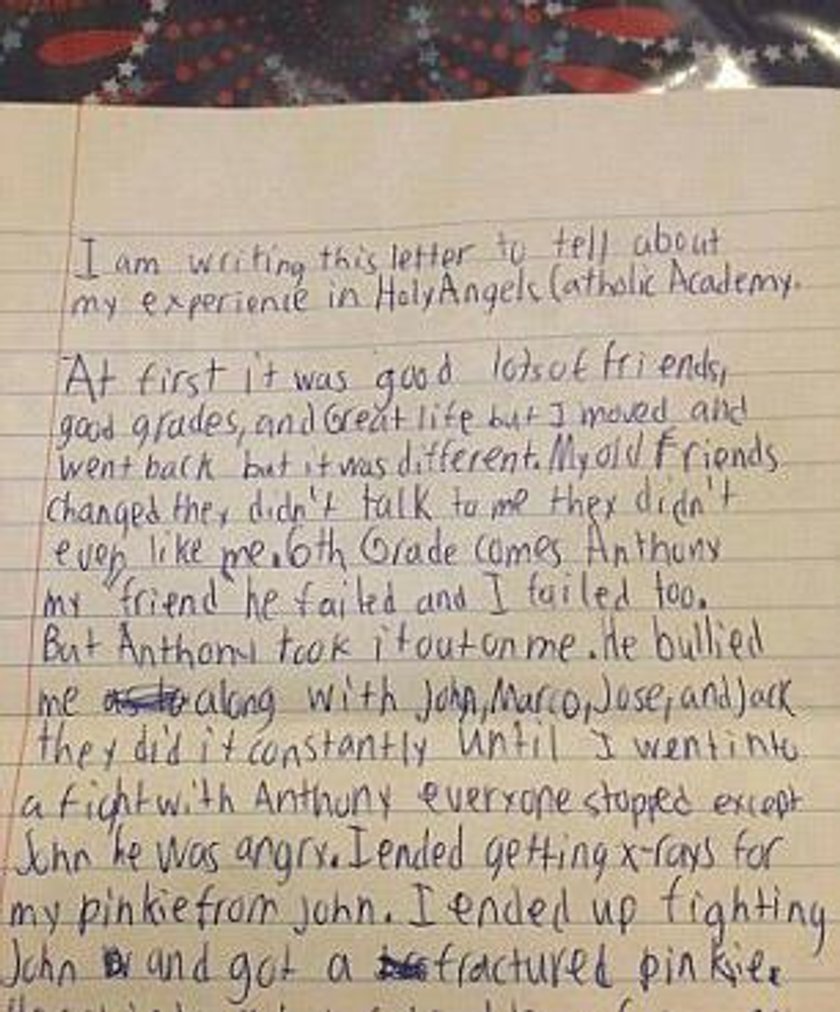 I am writing this letter to tell about
my experience in Holy Angels Catholic Academy.
At first it was good lots of friends,
good grades, and Great life but I moved and
went back but it was different. My old Friends
changed they didn't talk to me they didn't
even like me. 6th Grade comes Anthony
my "friend" he failed and I failed too.
But Anthony took it out on me. He bullied
me along with John, Marco, Jose, and Jack
they did it constantly until I went into
a fight with Anthony everyone stopped except
John he was angry. I ended getting x-rays for
my pinkie from john. I ended up fighting
John and got a fractured pinkie.